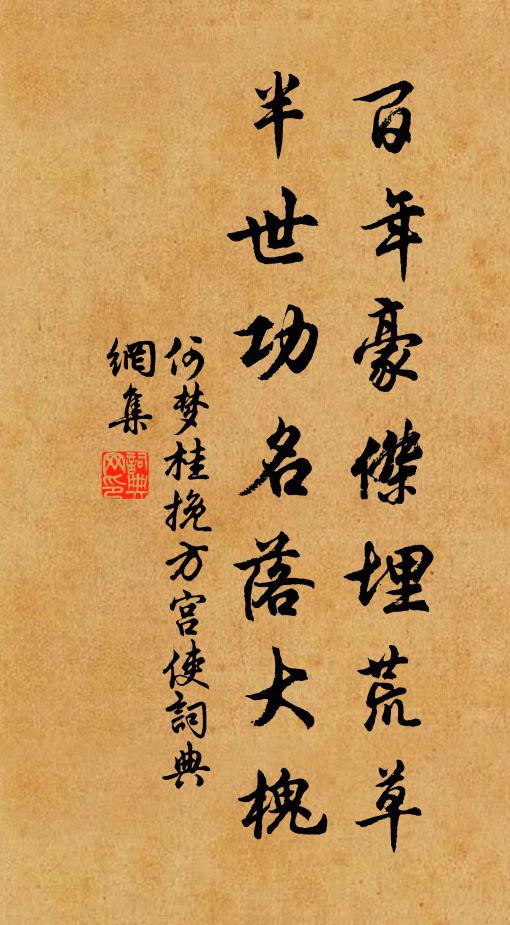 百年豪傑埋荒草
半世功名落大槐
何梦桂挽方宫使詞典
網集
詞典網印